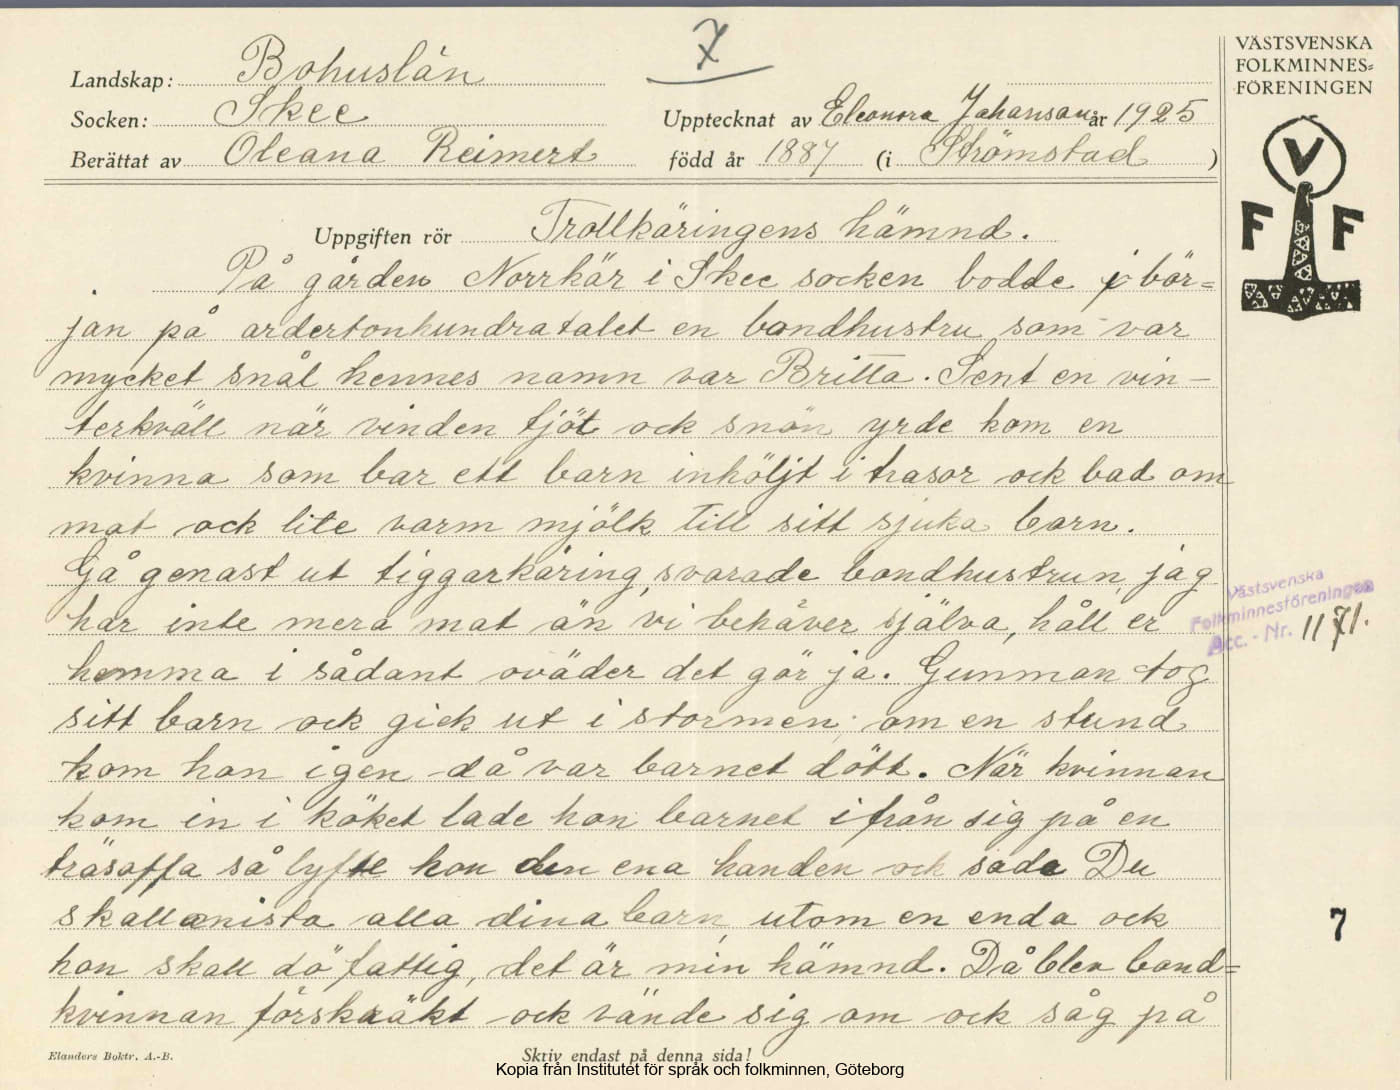 7
Landskap: Bohuslän
Socken: Skee
Upptecknat av Eleonora Johansau år 1925
Berättat av Oleana Reimert född år 1887 (i Strömstad)
VÄSTSVENSKA
FOLKMINNES=
FÖRENINGEN
V
F F
Uppgiften rör Trollkäringens hämnd.
På gården Norrkär i Skee socken bodde i bör=
jan på ardertonhundratalet en bondhustru som var
mycket snål hennes namn var Britta. Sent en vin-
terkväll när vinden tjöt ock snön yrde kom en
kvinna som bar ett barn inhöljt i trasor ock bad om
mat ock lite varm mjölk till sitt sjuka barn.
Gå genast ut tiggarkäring, svarade bondhustrun, jag
har inte mera mat än vi behäver själva, håll er
hemma i sådant oväder det gör ja. Gumman tog
sitt barn ock gick ut i stormen; om en stund
kom hon igen då var barnet dött. När kvinnan
kom in i köket lade hon barnet ifrån sig på en
träsoffa så lyfte hon den ena handen ock sade Du
skall mista alla dina barn, utom en enda ock
hon skall dö fattig, det är min hämnd. Då blev bond=
kvinnan förskräkt ock vände sig om ock såg på
Västsvenska
Folkminnesföreningen
Acc. - Nr. 1171.
7
Elanders Boktr. A.-B.
Skriv endast på denna sida!
Kopia från Institutet för språk och folkminnen, Göteborg